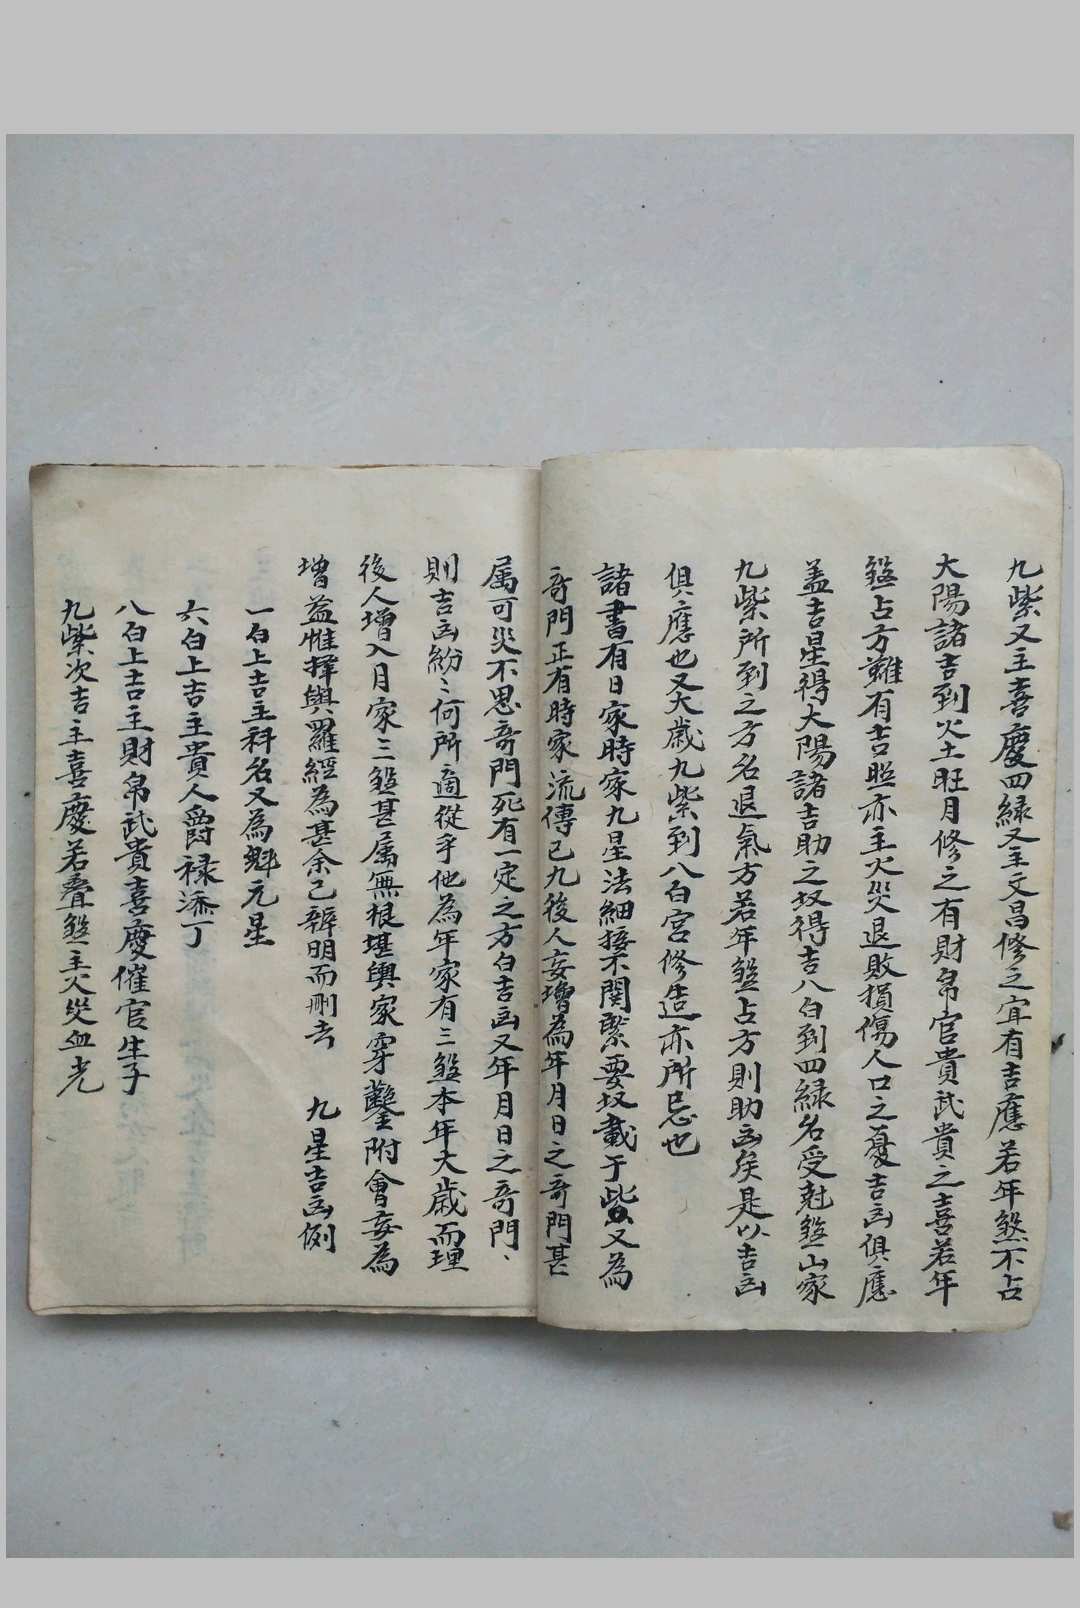 九紫又主喜慶四緑又主文昌修之宜有吉應若年煞不占
大陽諸吉到火土旺月修之有財帛官貴武貴之喜若年
煞占方難有吉照亦主火災退敗損傷人口之憂吉凶俱應
盖吉星得大陽諸吉助之故得吉八白到四緑名受尅煞山家
九紫所到之方名退氣方若年煞占方則助凶矣是以吉凶
俱應也又大歲九紫到八白宮修造亦所忌也
諸書有日家時家九星法細接不関緊要故載于紫又為
奇門正有時家流傳已九後人妄增為年月日之奇門甚
属可災不思奇門死有一定之方白吉凶又年月日之奇門、
則吉凶紛〻何所適從乎他為年家有三煞本年大歲而理
後人增入月家三煞甚属無根堪輿家穿鑿附會妄為
增益惟擇與羅經為甚余已辯明而刪去 九星吉凶例
一白上吉主科名又為魁元星
六白上吉主貴人爵禄添丁
八白上吉主財帛武貴喜慶催官生子
九紫次吉主喜慶若叠煞主火災血光